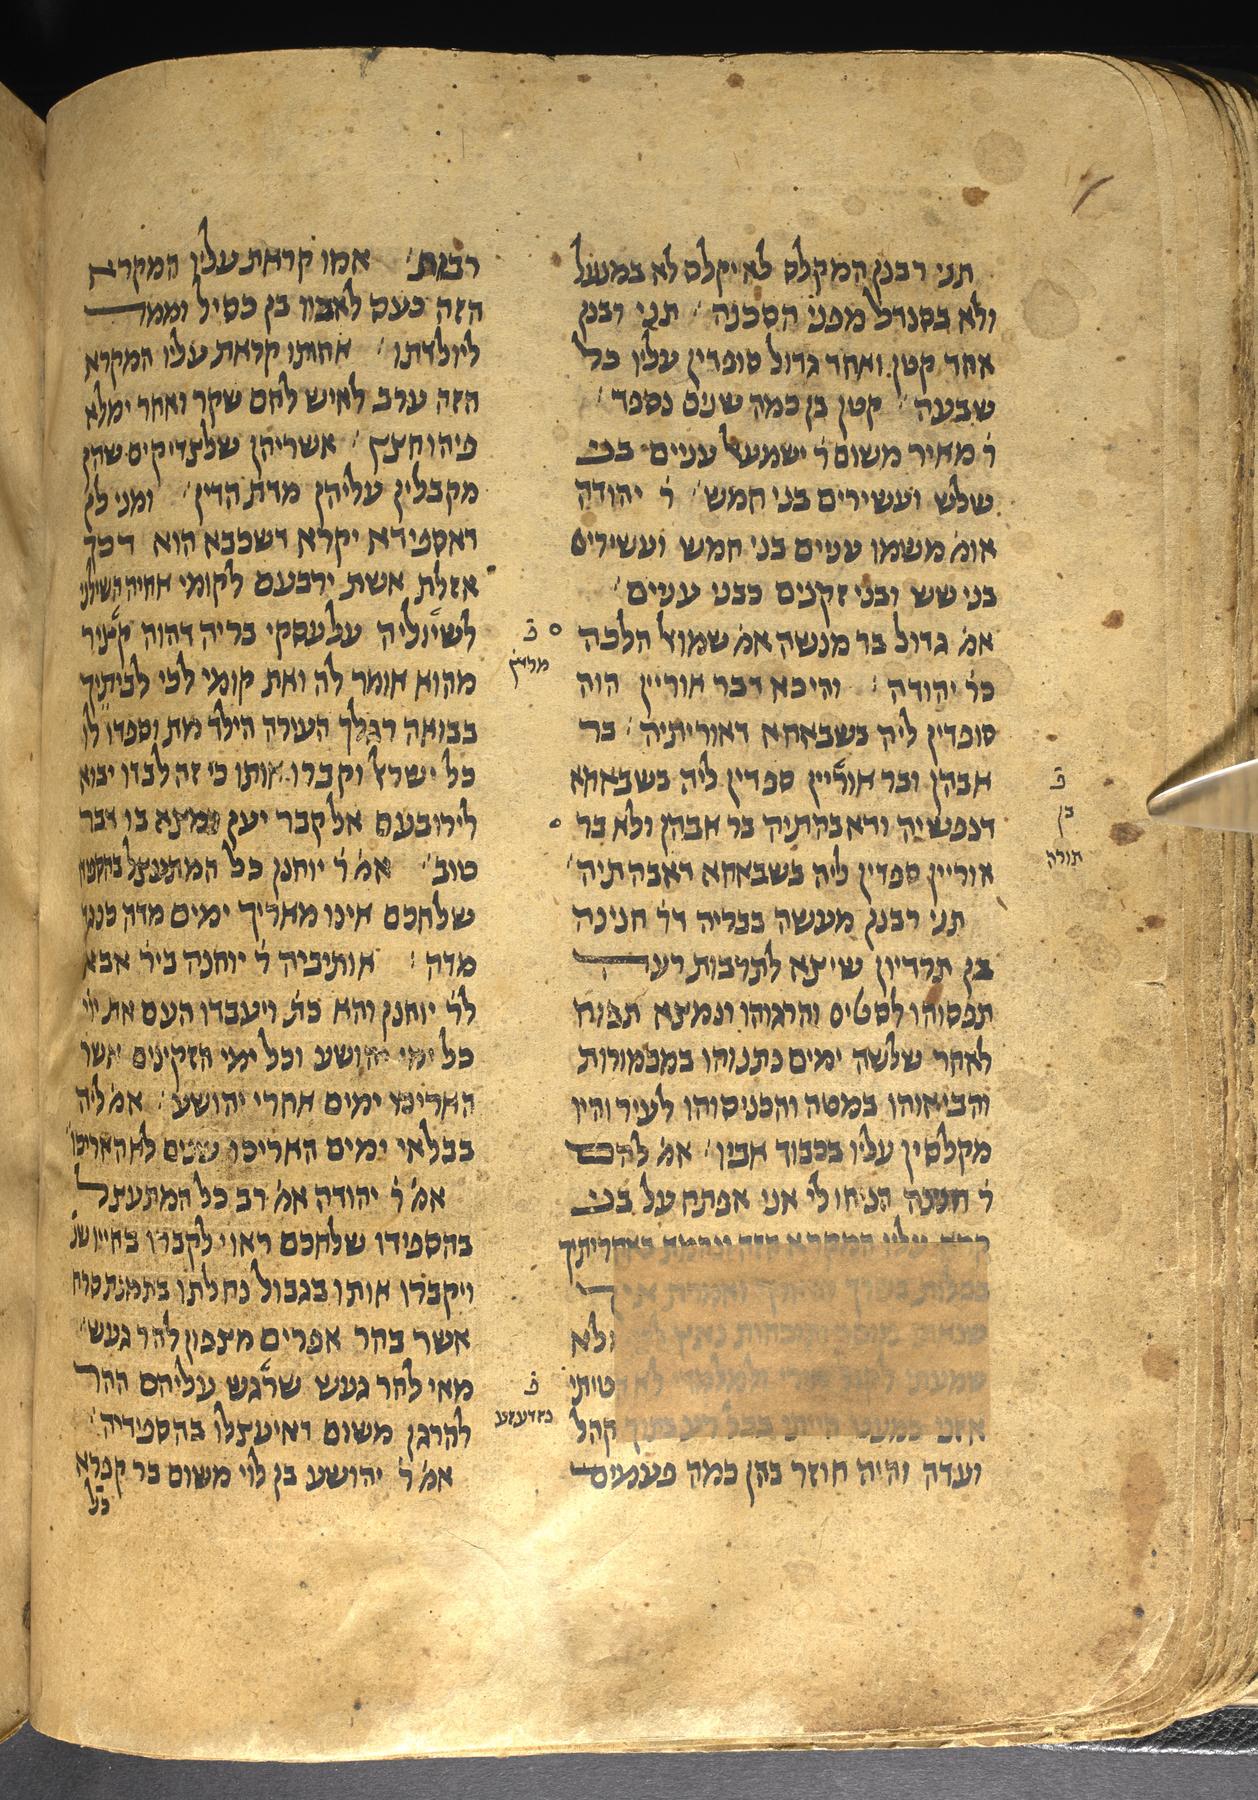 תני רבנן המקלס לא יקלס לא במנעל
ולא בסנדל מפני הסכנה תני רבנן
אחד קטן ואחד גדול סופדין עליו כל
שבעה קטן בן כמה שנים נספד
ר׳ מאיר משום ר׳ ישמעאל עניים בני
שלש ועשירים בני חמש ר׳ יהודה
אומ׳ משמו עניים בני חמש ועשירים
בני שש ובני זקנים כבני עניים
אמ׳ גדול בר מנשה אמ׳ שמואל הלכה
כר׳ יהודה והיכא דבר אוריין הוה
סופדין ליה בשבאחא דאוריתיה בר
אבהן ובר אוריין ספדין ליה בשבאחא
דנפשיה ודאבהתיה בר אבהן ולא בר
אוריין ספדין ליה בשבאחא דאבהתיה
תני רבנן מעשה בבריה דר׳ חנינה
בן תרדיון שיצא לתרבות רעה
תפסוהו לסטיס והרגוהו ונמצא תפוח
לאחר שלשה ימים נתנוהו במכמורות
והביאוהו במטה והכניסוהו לעיר והיו
מקלסין עליו בכבוד אביו אמ׳ להם
ר׳ חנינה הניחו לי אני אפתח על בני
קרא עליו המקרא הזה ונהמת באחריתיך
בכלות בשרך ואמרת איך
שנאתי ולא
שמעתי לקול הטיתי
אזני כמעט הייתי בכל רע בתוך קהל
ועדה והיה חוזר בהן כמה פעמים
רבות אמו קראת עליו המקרא
הזה כעס לאביו בן כסיל וממר
ליולדתו אחותו קראת עליו המקרא
הזה ערב לאיש לחם שקר ואחר ימלא
פיהו חצץ אשריהן שלצדיקים שהן
מקבלין עליהן מדת הדין ומני לן
דאספידא יקרא דשכבא הוא דכך
אזלת אשת ירבעם לקומי אחיה השילוני
לשיוליה על עסקי בריה דהוה קציר
מהוא אומר לה ואת קומי לכי לביתיך
בבואה רגלך העירה הילד מת וספדו לו
כל ישראל וקברו אותו כי זה לבדו יבוא
לירובעם אל קבר יען נמצא בו דבר
טוב אמ׳ ר׳ יוחנן כל המתעצל בהספדו
שלחכם אינו מאריך ימים מדה כנגד
מדה אותיביה ר׳ יוחנה ביר׳ אבא
לר׳ יוחנן והא כת׳ ויעבדו העם את ייי
כל ימי יהושע וכל ימי הזקינים אשר
האריכו ימים אחרי יהושע אמ׳ ליה
בבלאי ימים האריכו שנים לא האריכו
אמ׳ ר׳ יהודה אמ׳ רב כל המתעצל
בהספידו שלחכם ראוי לקברו בחייו שנ׳
ויקברו אותו בגבול נחלתו בתמנת סרח
אשר בהר אפרים מצפון להר געש
מאי להר געש שרגש עליהם ההר
להרגן משום דאיעצלו בהספידיה
אמ׳ ר׳ יהושע בן לוי משום בר קפרא
כל